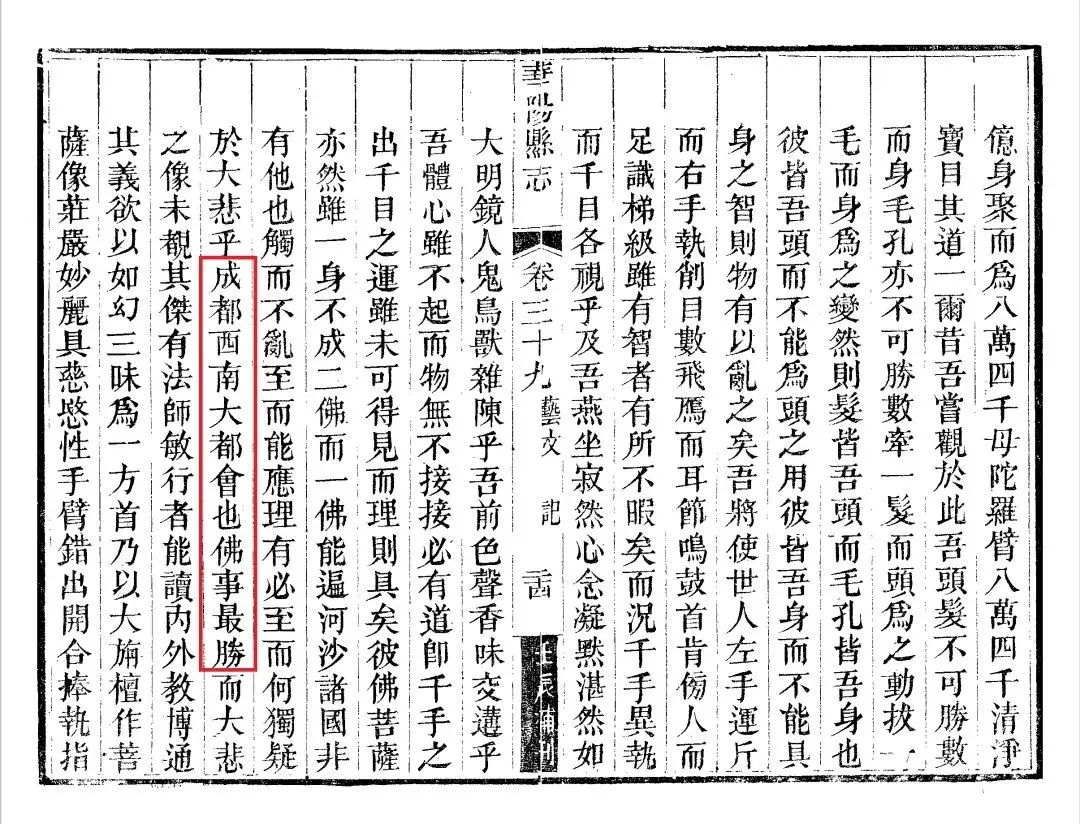 億身聚而爲八萬四千母陀羅臂八萬四千清淨
寶目其道一爾昔吾嘗觀於此吾頭髮不可勝數
而身毛孔亦不可勝數牽一髮而頭爲之動拔一
毛而身爲之變然則髮皆吾頭而毛孔皆吾身也
彼皆吾頭而不能爲頭之用彼皆吾身而不能具
身之智則物有以亂之矣吾將使世人左手運斤
而右手執削目數飛鴈而耳節鳴鼓首肯傍人而
足識梯級雖有智者有所不暇矣而況千手異執
而千目各視乎及吾燕坐寂然心念凝默湛然如
華陽縣志
卷三十九 藝文 記
壬辰補刊
大明鏡人鬼鳥獸雜陳乎吾前色聲香味交遘乎
吾體心雖不起而物無不接接必有道卽千手之
出千目之運雖未可得見而理則具矣彼佛菩薩
亦然雖一身不成二佛而一佛能遍河沙諸國非
有他也觸而不亂至而能應理有必至而何獨疑
於大悲乎成都西南大都會也佛事最勝而大悲
之像未覩其傑有法師敏行者能讀內外教博通
其義欲以如幻三昧爲一方首乃以大旃檀作菩
薩像莊嚴妙麗具慈愍性手臂錯出開合捧執指